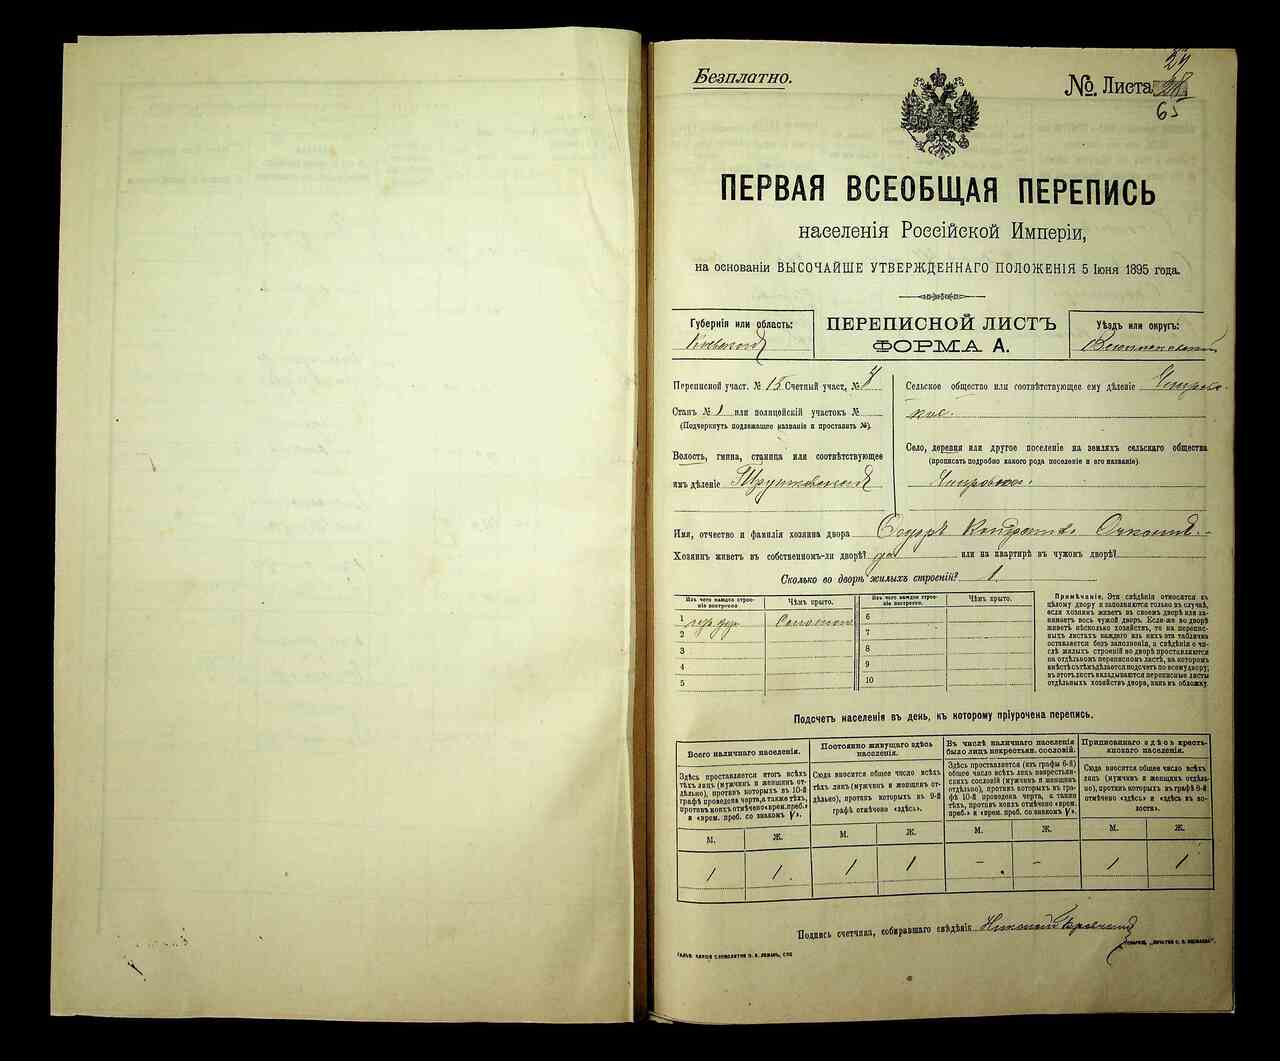 Безплатно.
№. Листа 29
65
ПЕРВАЯ ВСЕОБЩАЯ ПЕРЕПИСЬ
населенія Россійской Имперіи,
на основаніи ВЫСОЧАЙШЕ УТВЕРЖДЕННАГО ПОЛОЖЕНІЯ 5 Іюня 1895 года.
Губернія или область:
Кіевской
ПЕРЕПИСНОЙ ЛИСТЪ
ФОРМА А.
Уѣздъ или округъ:
Переписной участ. № 15 Счетный участ. №
Станъ № 1 или полицейскій участокъ №
(Подчеркнуть подлежащее названіе и проставить №).
Волость, гмина, станица или соотвѣтствующее
имъ дѣленіе
Сельское общество или соотвѣтствующее ему дѣленіе
кое.
Село, деревня или другое поселеніе на земляхъ сельскаго общества
(прописать подробно какого рода поселеніе и его названіе).
Имя, отчество и фамилія хозяина двора Федоръ
Хозяинъ живетъ въ собственномъ-ли дворѣ? да или на квартирѣ въ чужомъ дворѣ?
Сколько во дворѣ жилыхъ строеній? 1.
Изъ чего каждое строеніе построено
Чѣмъ крыто.
Изъ чего каждое строеніе построено.
Чѣмъ крыто.
1 Соломой 6
2 7
3 8
4 9
5 10
Примѣчаніе. Эти свѣдѣнія относятся къ
цѣлому двору и заполняются только въ случаѣ,
если хозяинъ живетъ въ своемъ дворѣ или за-
нимаетъ весь чужой дворъ. Если-же во дворѣ
живетъ нѣсколько хозяйствъ, то на перепис-
ныхъ листахъ каждаго изъ нихъ эта табличка
оставляется безъ заполненія, а свѣдѣнія о чи-
слѣ жилыхъ строеній во дворѣ проставляются
на отдѣльномъ переписномъ листѣ, на которомъ
вмѣстѣ съ тѣмъ дѣлается подсчетъ по всему двору;
въ этотъ листъ вкладываются переписные листы
отдѣльныхъ хозяйствъ двора, какъ въ обложку.
Подсчетъ населенія въ день, къ которому пріурочена перепись.
Всего наличнаго населенія.
Здѣсь проставляется итогъ всѣхъ
тѣхъ лицъ (мужчинъ и женщинъ от-
дѣльно), противъ которыхъ въ 10-й
графѣ проведена черта, а также тѣхъ,
противъ коихъ отмѣчено «врем. преб.»
и «врем. преб. со знакомъ V».
Постоянно живущаго здѣсь
населенія.
Сюда вносится общее число всѣхъ
тѣхъ лицъ (мужчинъ и женщинъ от-
дѣльно), противъ которыхъ въ 9-й
графѣ отмѣчено «здѣсь».
Въ числѣ наличнаго населенія
было лицъ некрестьян. сословій.
Здѣсь проставляется (изъ графы 6-й)
общее число всѣхъ лицъ некрестьян-
скихъ сословій (мужчинъ и женщинъ
отдѣльно), противъ которыхъ въ гра-
фѣ 10-й проведена черта, а также
тѣхъ, противъ коихъ отмѣчено «врем.
преб.» и «врем. преб. со знакомъ V».
Приписаннаго здѣсь кресть-
янскаго населенія.
Сюда вносится общее число всѣхъ
лицъ (мужчинъ и женщинъ отдѣль-
но), противъ которыхъ въ графѣ 8-й
отмѣчено «здѣсь» и «здѣсь въ во-
лости».
М. Ж. М. Ж. М. Ж. М. Ж.
1 1. 1 1 – – 1 1
Подпись счетчика, собиравшаго свѣдѣнія Николай